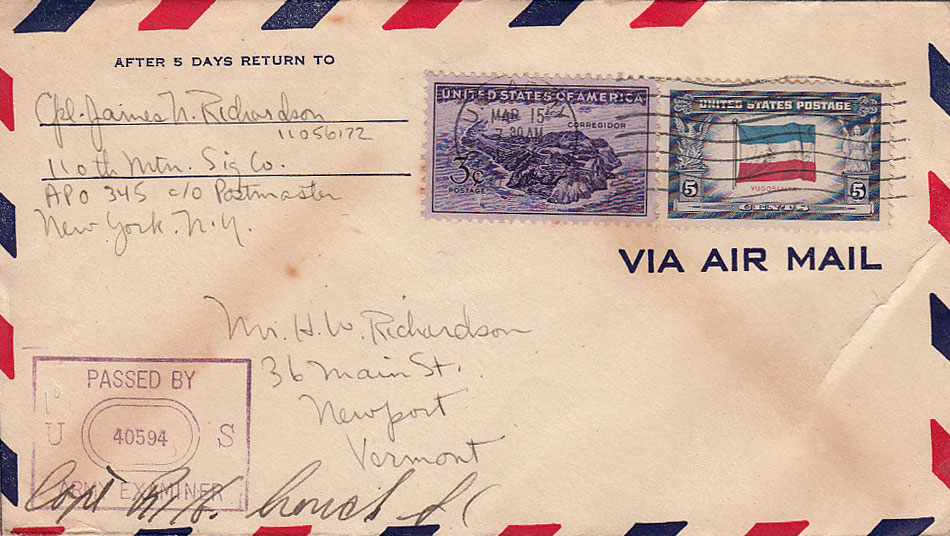 AFTER 5 DAYS RETURN TO
Cpl. James N. Richardson
11056172
110th Mtn. Sig Co.
APO 345 c/o Postmaster
New York. N.Y.
UNITED STATES OF AMERICA
CORREGIDOR
3¢
POSTAGE
MAR 15
7 30 AM
UNITED STATES POSTAGE
YUGOSLAVIA
5 5
CENTS
VIA AIR MAIL
Mr. H. W. Richardson
36 Main St.
Newport
Vermont
PASSED BY
U 40594 S
ARMY EXAMINER
Capt